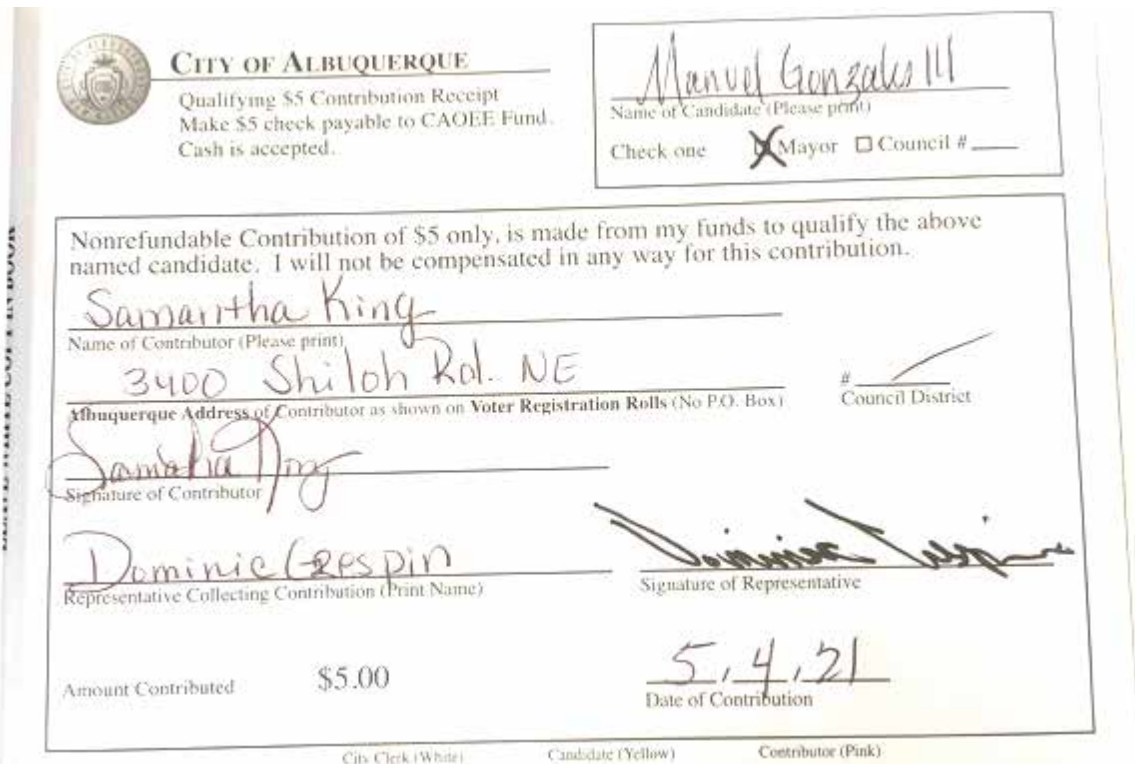 CITY OF ALBUQUERQUE
Qualifying $5 Contribution Receipt
Make $5 check payable to CAOEE Fund.
Cash is accepted.
Manuel Gonzales III
Name of Candidate (Please print)
Check one Mayor Council #
Nonrefundable Contribution of $5 only, is made from my funds to qualify the above
named candidate. I will not be compensated in any way for this contribution.
Samantha King
Name of Contributor (Please print)
3400 Shiloh Rd. NE
#
Albuquerque Address of Contributor as shown on Voter Registration Rolls (No P.O. Box)
Council District
Samantha King
Signature of Contributor
Dominic Crespin
Representative Collecting Contribution (Print Name)
Dominic Crespin
Signature of Representative
Amount Contributed $5.00
5.4.21
Date of Contribution
City Clerk (White) Candidate (Yellow) Contributor (Pink)